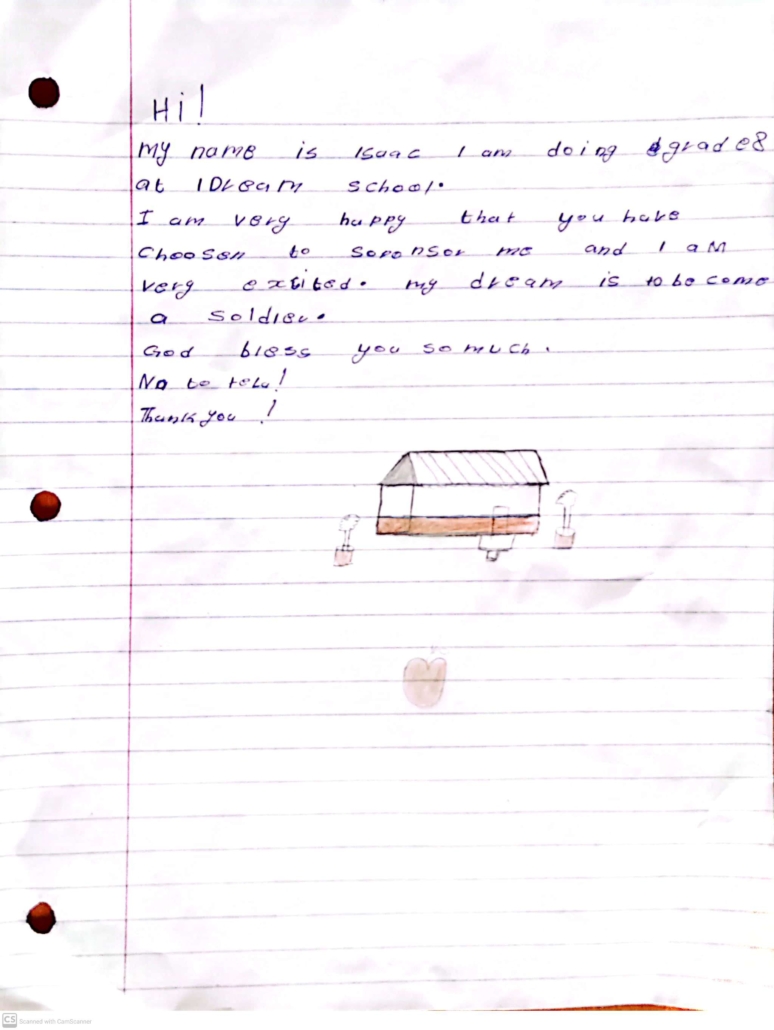 Hi!
My name is Isaac I am doing grade8
at IDream school.
I am very happy that you have
Choosen to soponsor me and I aM
very exiited. my dream is to become
a soldier.
God bless you so much.
Thank you !
CS Scanned with CamScanner